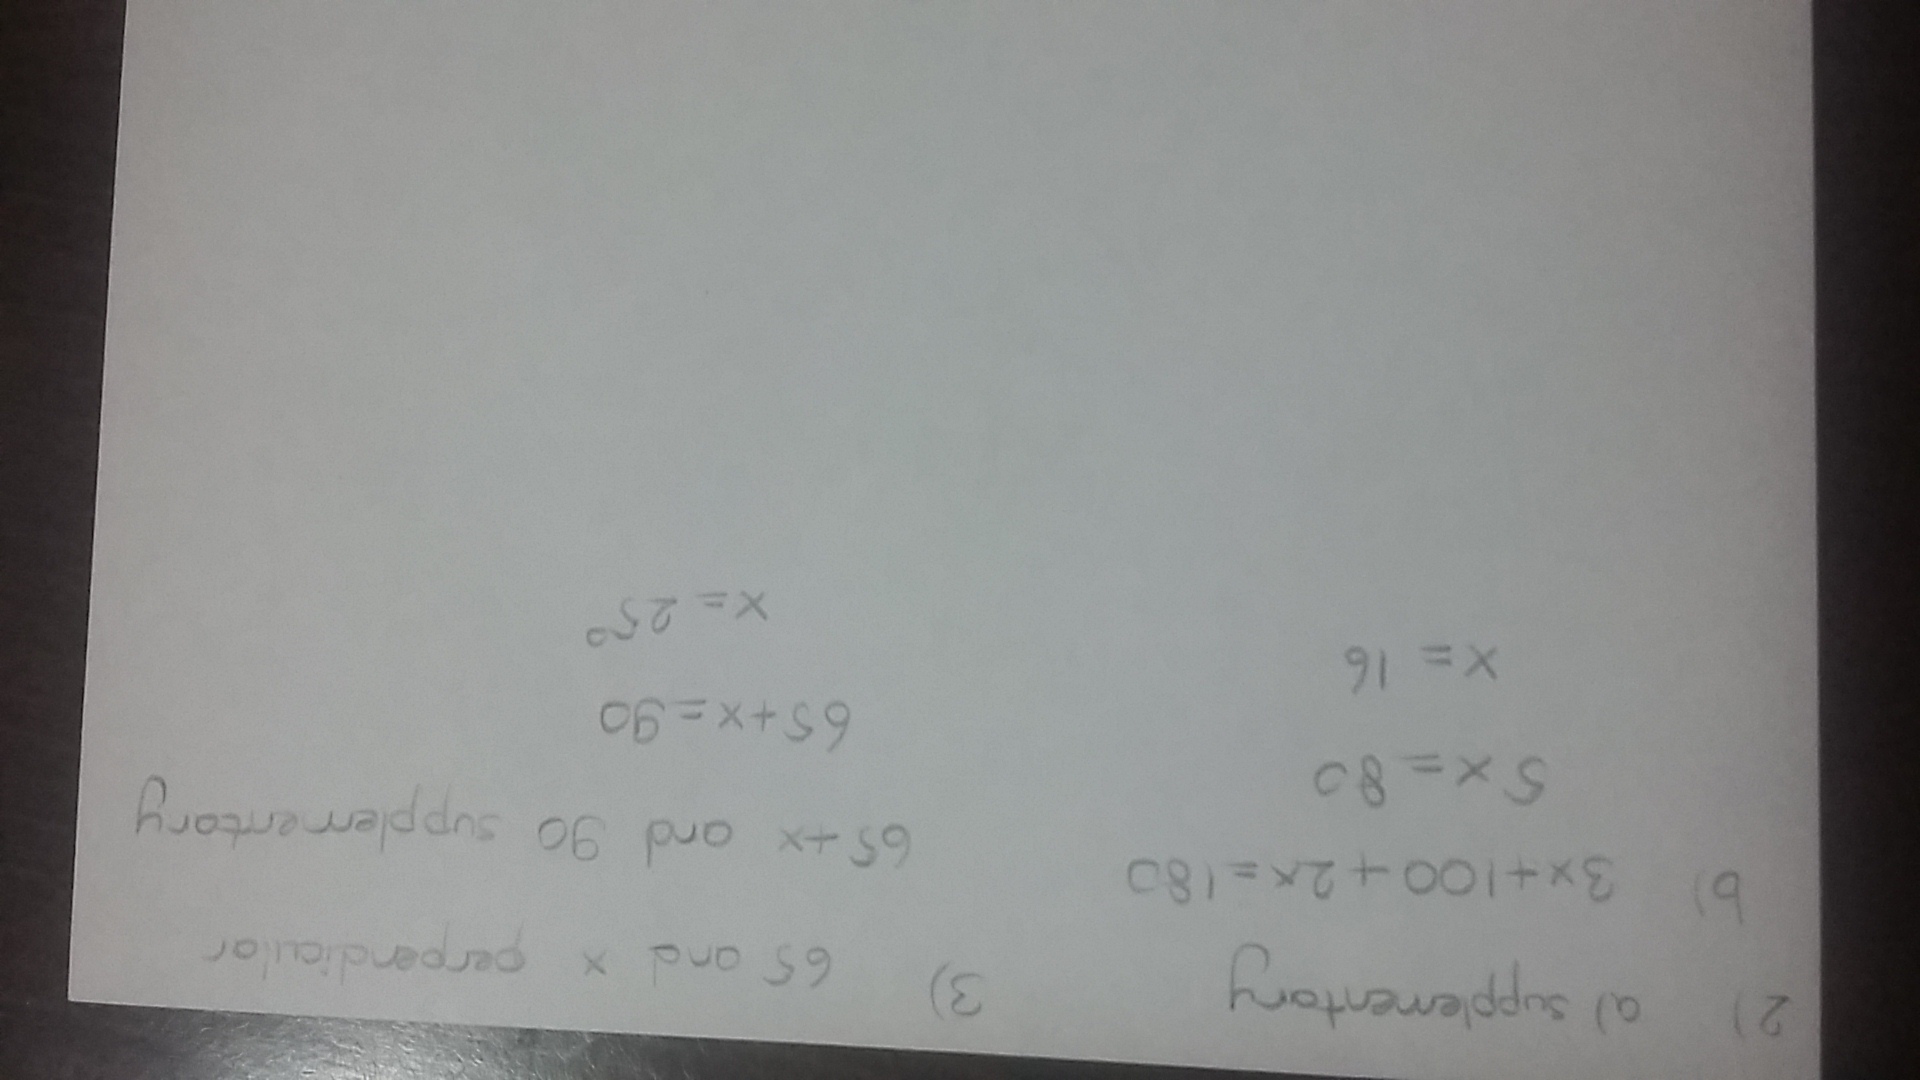 2) a) supplementary
b) 3x+100+2x=180
5x=80
x=16
3) 65 and x perpendicular
65+x and 90 supplementary
65+x=90
x=25°